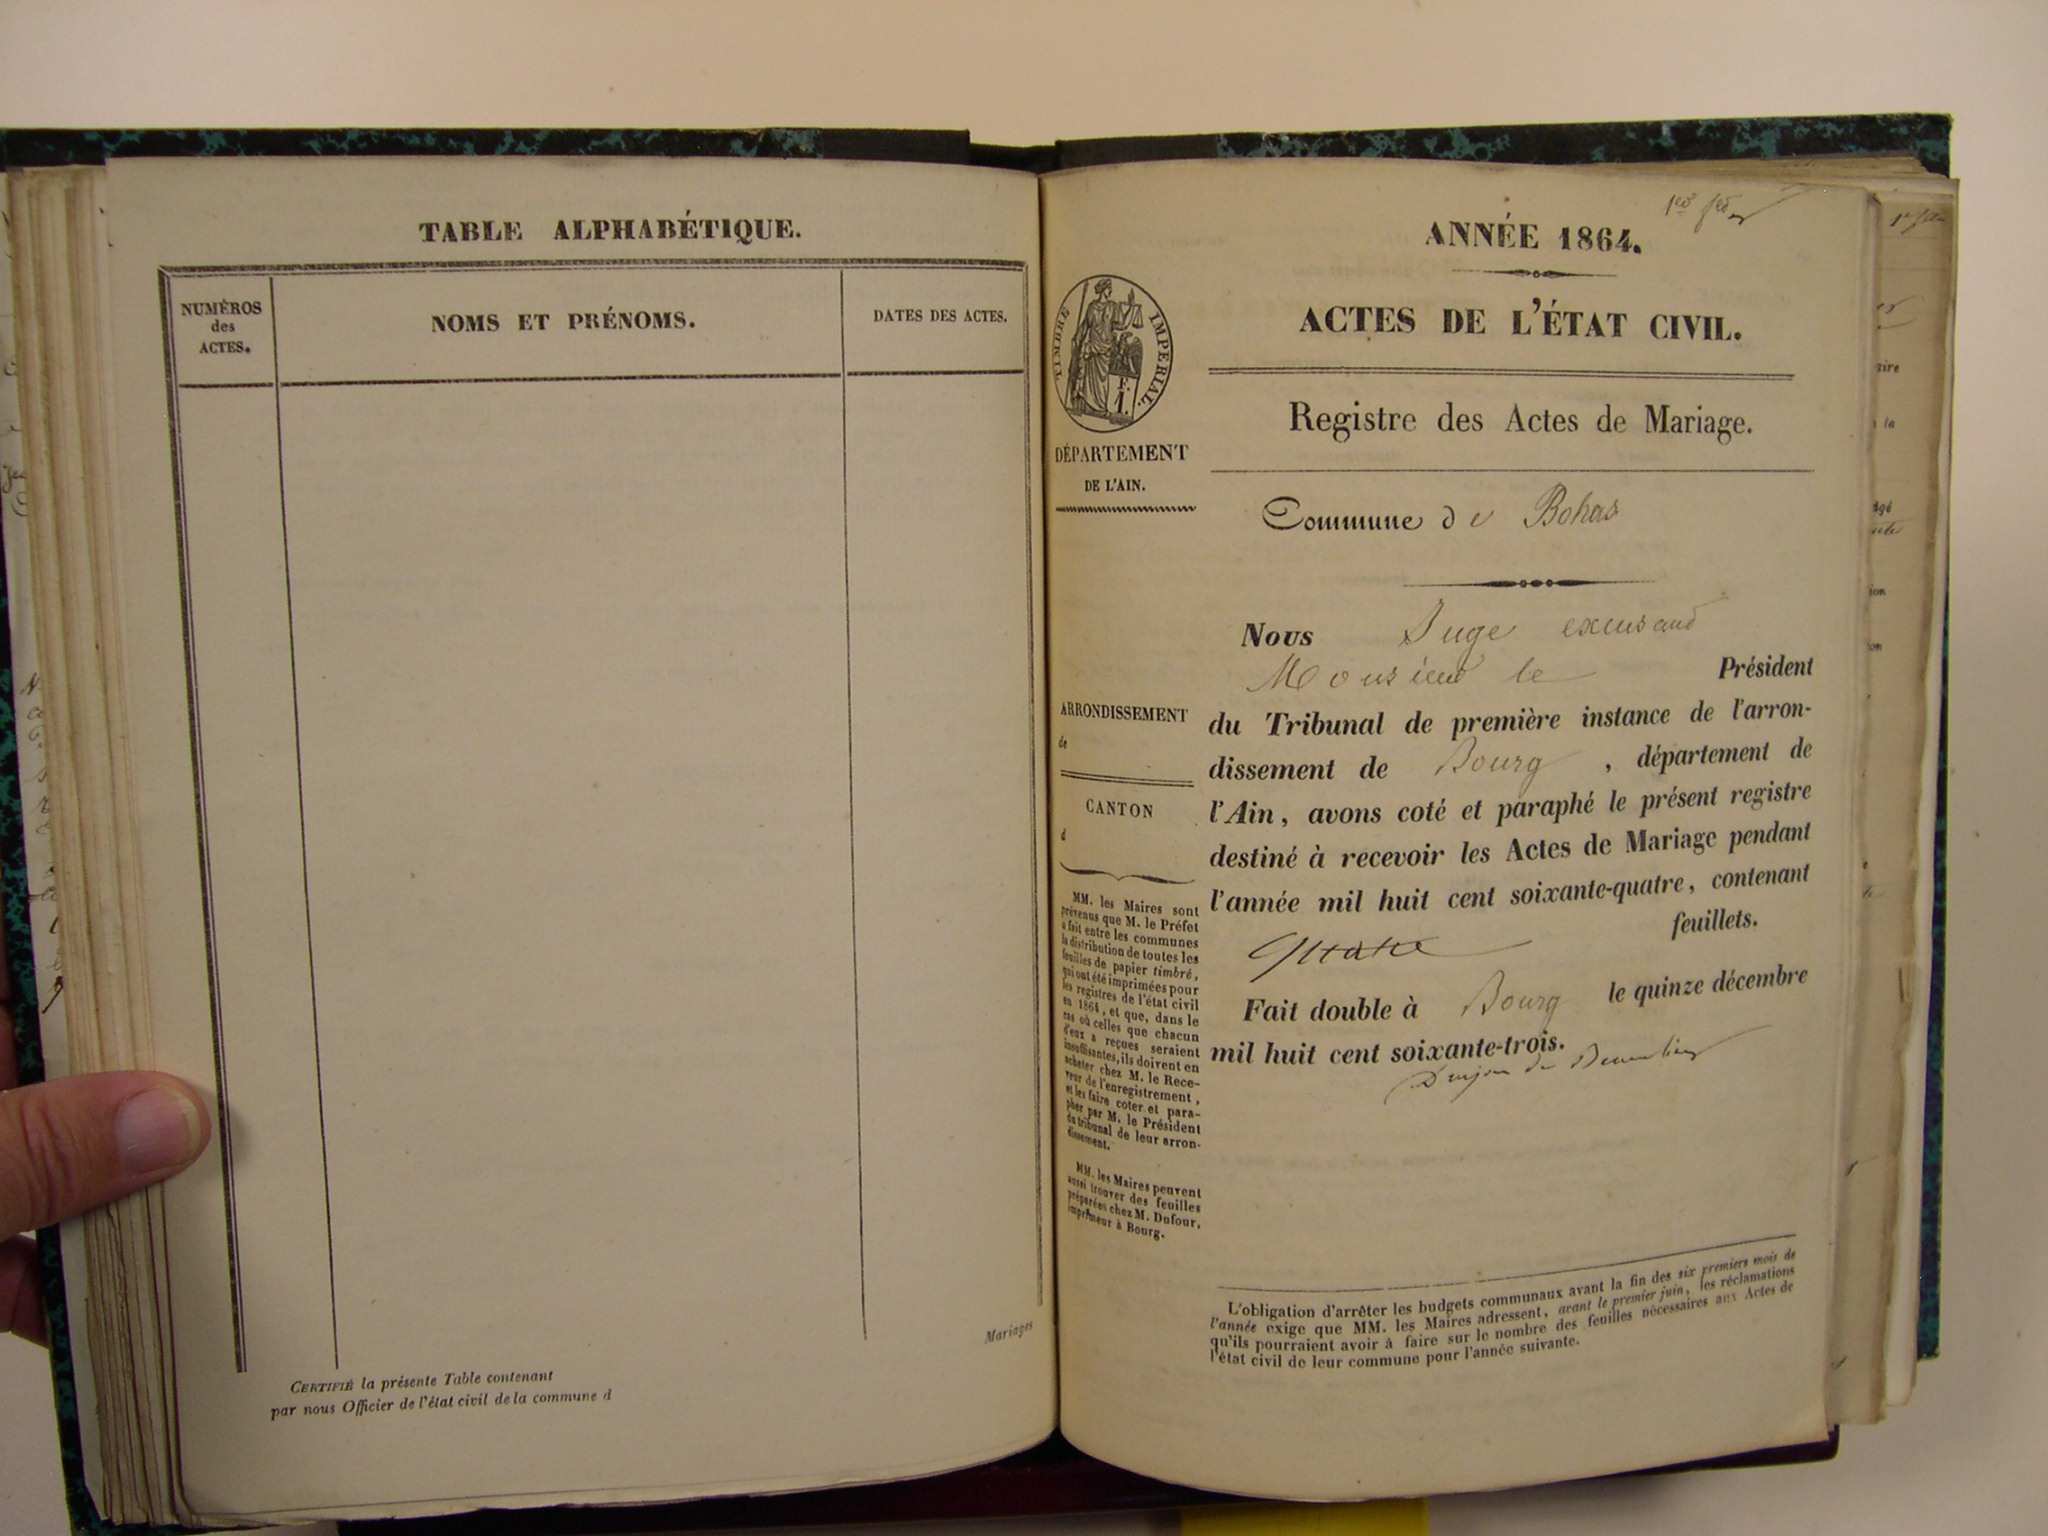 TABLE ALPHABÉTIQUE.
NUMÉROS
des
ACTES.
NOMS ET PRÉNOMS.
DATES DES ACTES.
Mariages
CERTIFIÉ la présente Table contenant
par nous Officier de l'état civil de la commune d
ANNÉE 1864.
ACTES DE L'ÉTAT CIVIL.
TIMBRE IMPÉRIAL.
F.
1.
DÉPARTEMENT
DE L'AIN.
Registre des Actes de Mariage.
Commune de Bohas
Nous Juge
Monsieur le Président
du Tribunal de première instance de l'arron-
dissement de Bourg, département de
l'Ain, avons coté et paraphé le présent registre
destiné à recevoir les Actes de Mariage pendant
l'année mil huit cent soixante-quatre, contenant
quatre feuillets.
Fait double à Bourg le quinze décembre
mil huit cent soixante-trois.
ARRONDISSEMENT
de
CANTON
d
MM. les Maires sont
prévenus que M. le Préfet
a fait entre les communes
la distribution de toutes les
feuilles de papier timbré,
qui ont été imprimées pour
les registres de l'état civil
en 1864, et que, dans le
cas où celles que chacun
d'eux a reçues seraient
insuffisantes, ils doivent en
acheter chez M. le Rece-
veur de l'enregistrement,
et les faire coter et para-
pher par M. le Président
du tribunal de leur arron-
dissement.
MM. les Maires peuvent
aussi trouver des feuilles
préparées chez M. Dufour,
imprimeur à Bourg.
L'obligation d'arrêter les budgets communaux avant la fin des six premiers mois de
l'année exige que MM. les Maires adressent, avant le premier juin, les réclamations
qu'ils pourraient avoir à faire sur le nombre des feuilles nécessaires aux Actes de
l'état civil de leur commune pour l'année suivante.